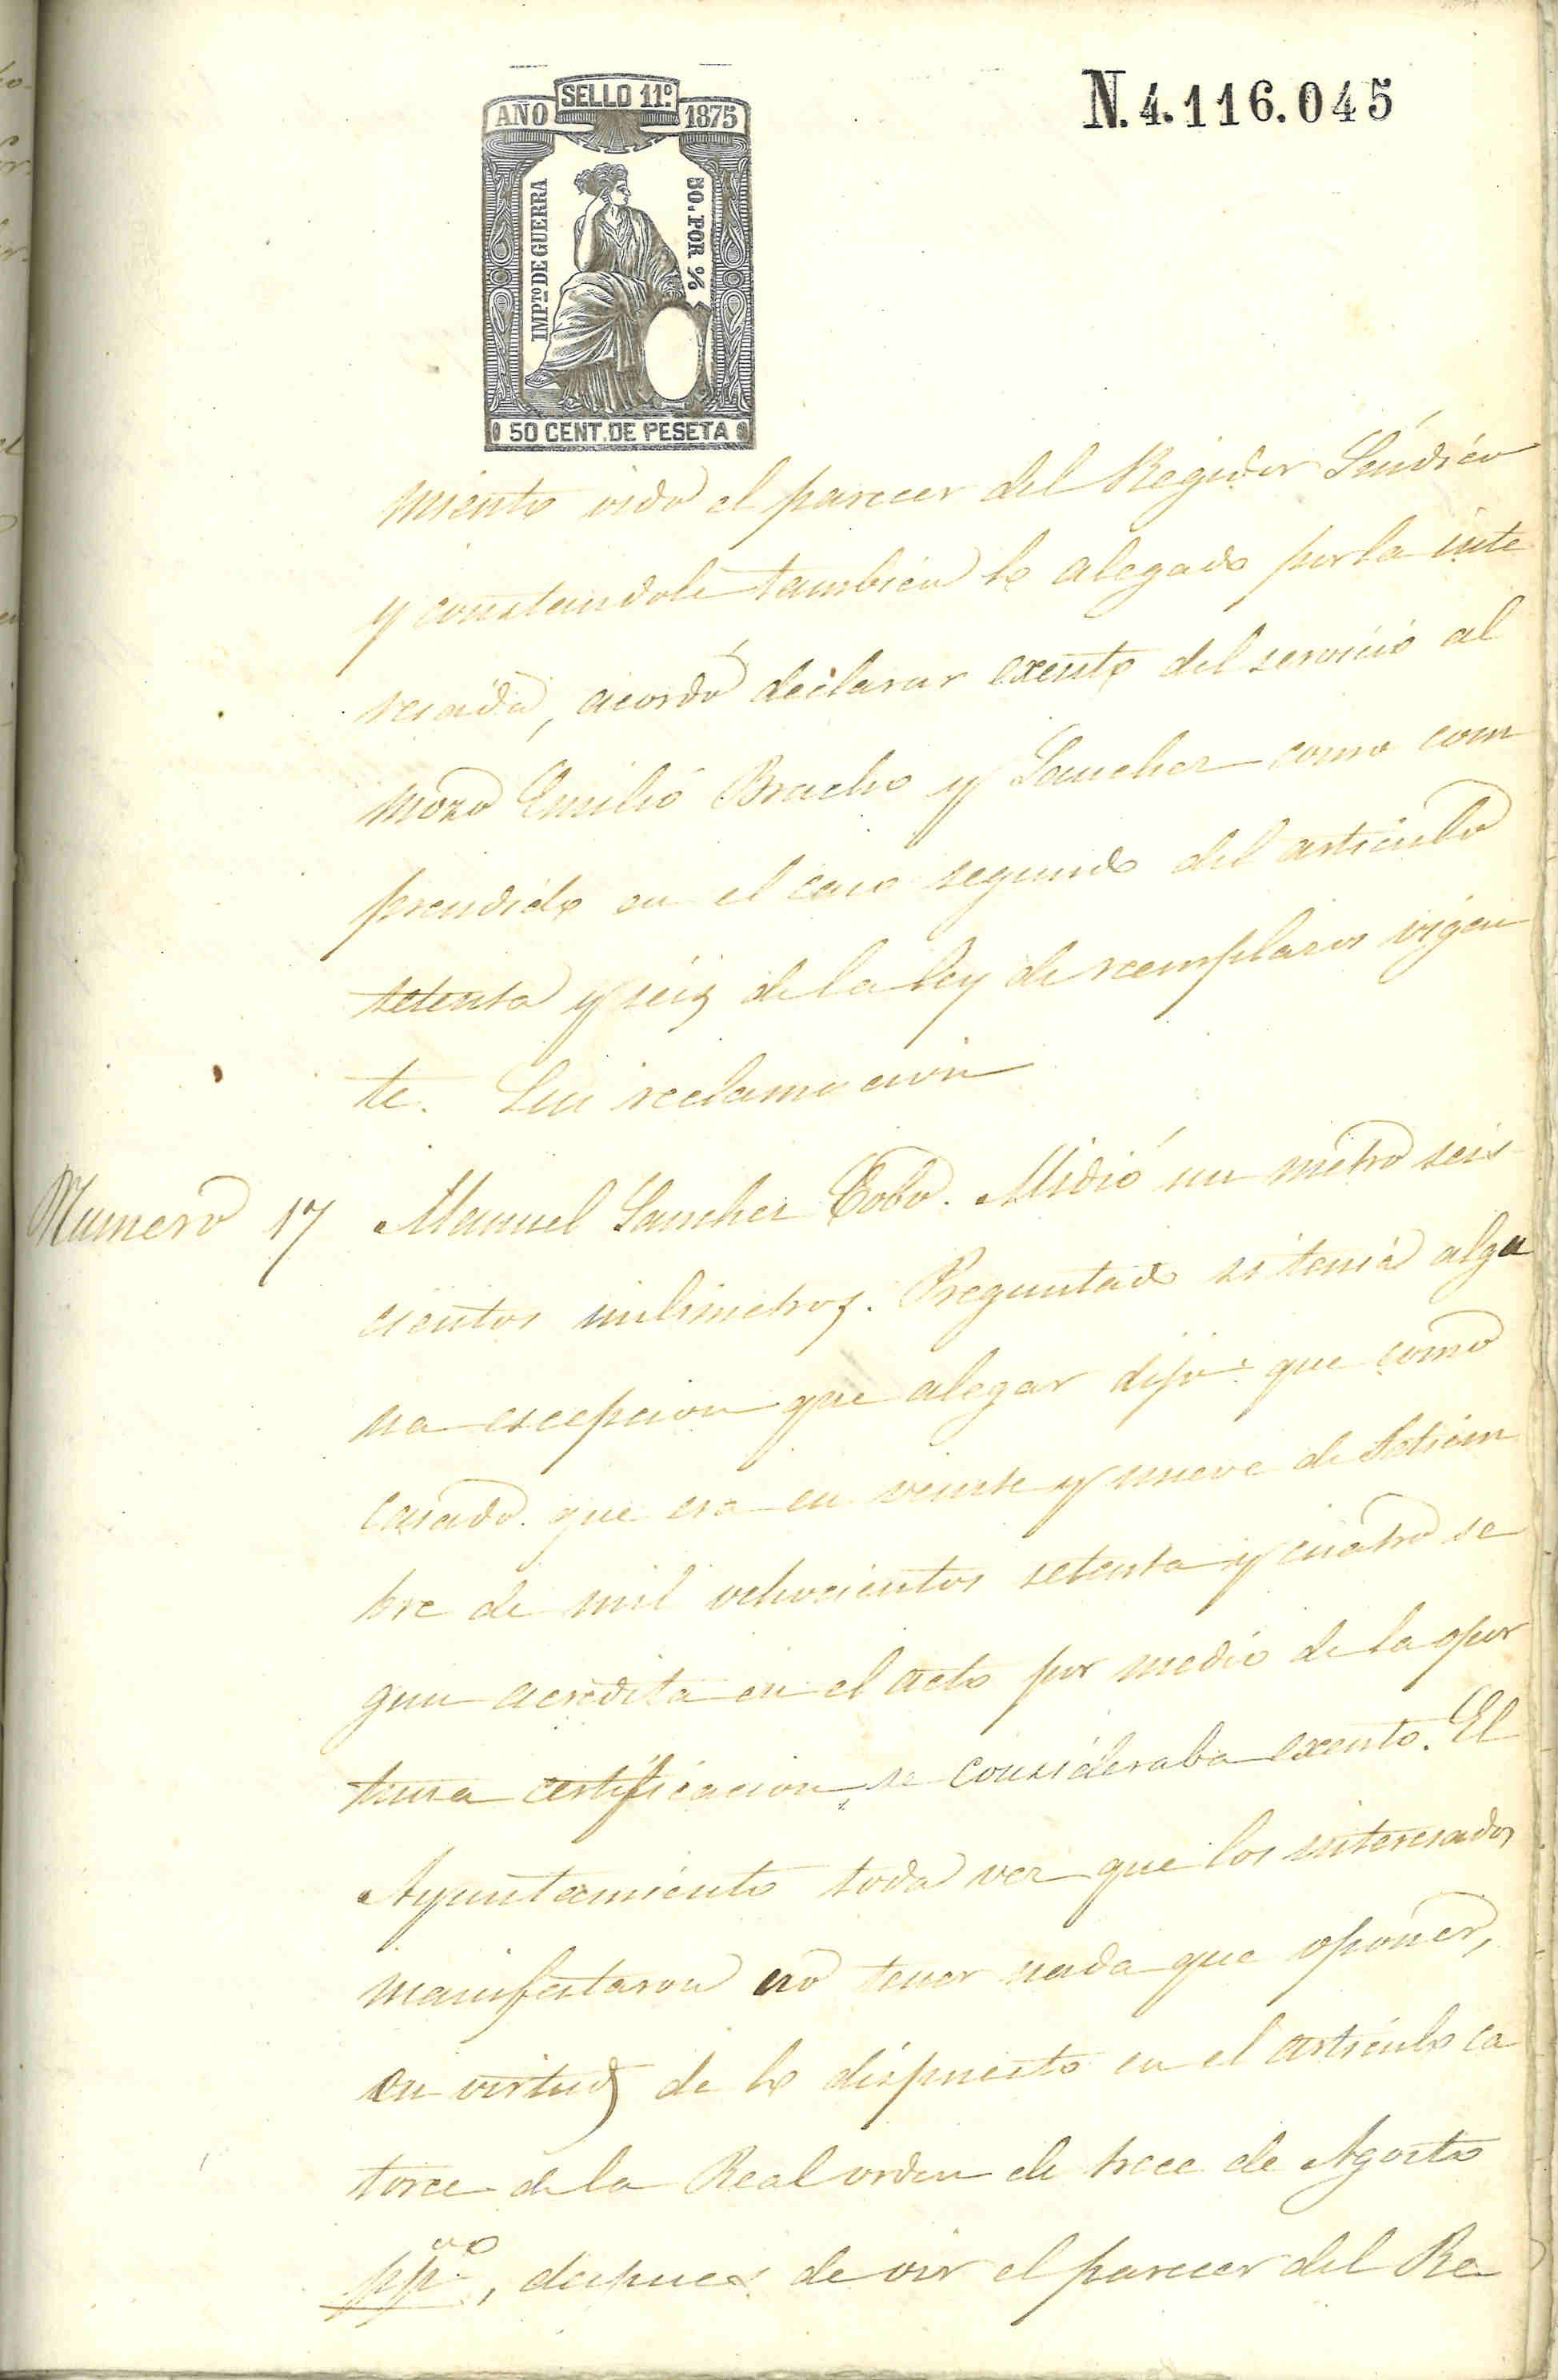 N. 4.116.045
AÑO SELLO 11º 1875
IMPTO DE GUERRA
50. POR %
50 CENT. DE PESETA
miento oido el parecer del Regidor Sindico
y constandole tambien lo alegado por la inte
resada, acordó declarar exento del servicio al
mozo Emilio Bracho y Sanchez como com
prendido en el caso segundo del articulo
setenta y seis de la ley de reemplazos vigen
te. Sin reclamacion
Numero 17 Manuel Sanchez Cobo. Midió un metro seis
cientos milimetros. Preguntado si tenia algu
na escepcion que alegar dijo: que como
casado que era en veinte y nueve de Setiem
bre de mil ochocientos setenta y cuatro se
gun acredita en el acto por medio de la opor
tuna certificacion, se consideraba exento. El
Ayuntamiento toda vez que los interesados
manifestaron no tener nada que oponer,
en virtud de lo dispuesto en el articulo ca
torce de la Real orden de trece de Agosto
pp.do, despues de oir el parecer del Re